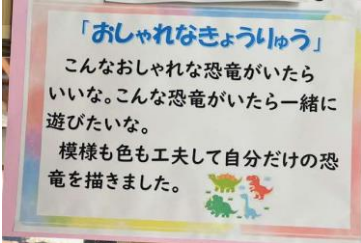 「おしゃれなきょうりゅう」
こんなおしゃれな恐竜がいたら
いいな。こんな恐竜がいたら一緒に
遊びたいな。
模様も色も工夫して自分だけの恐
竜を描きました。